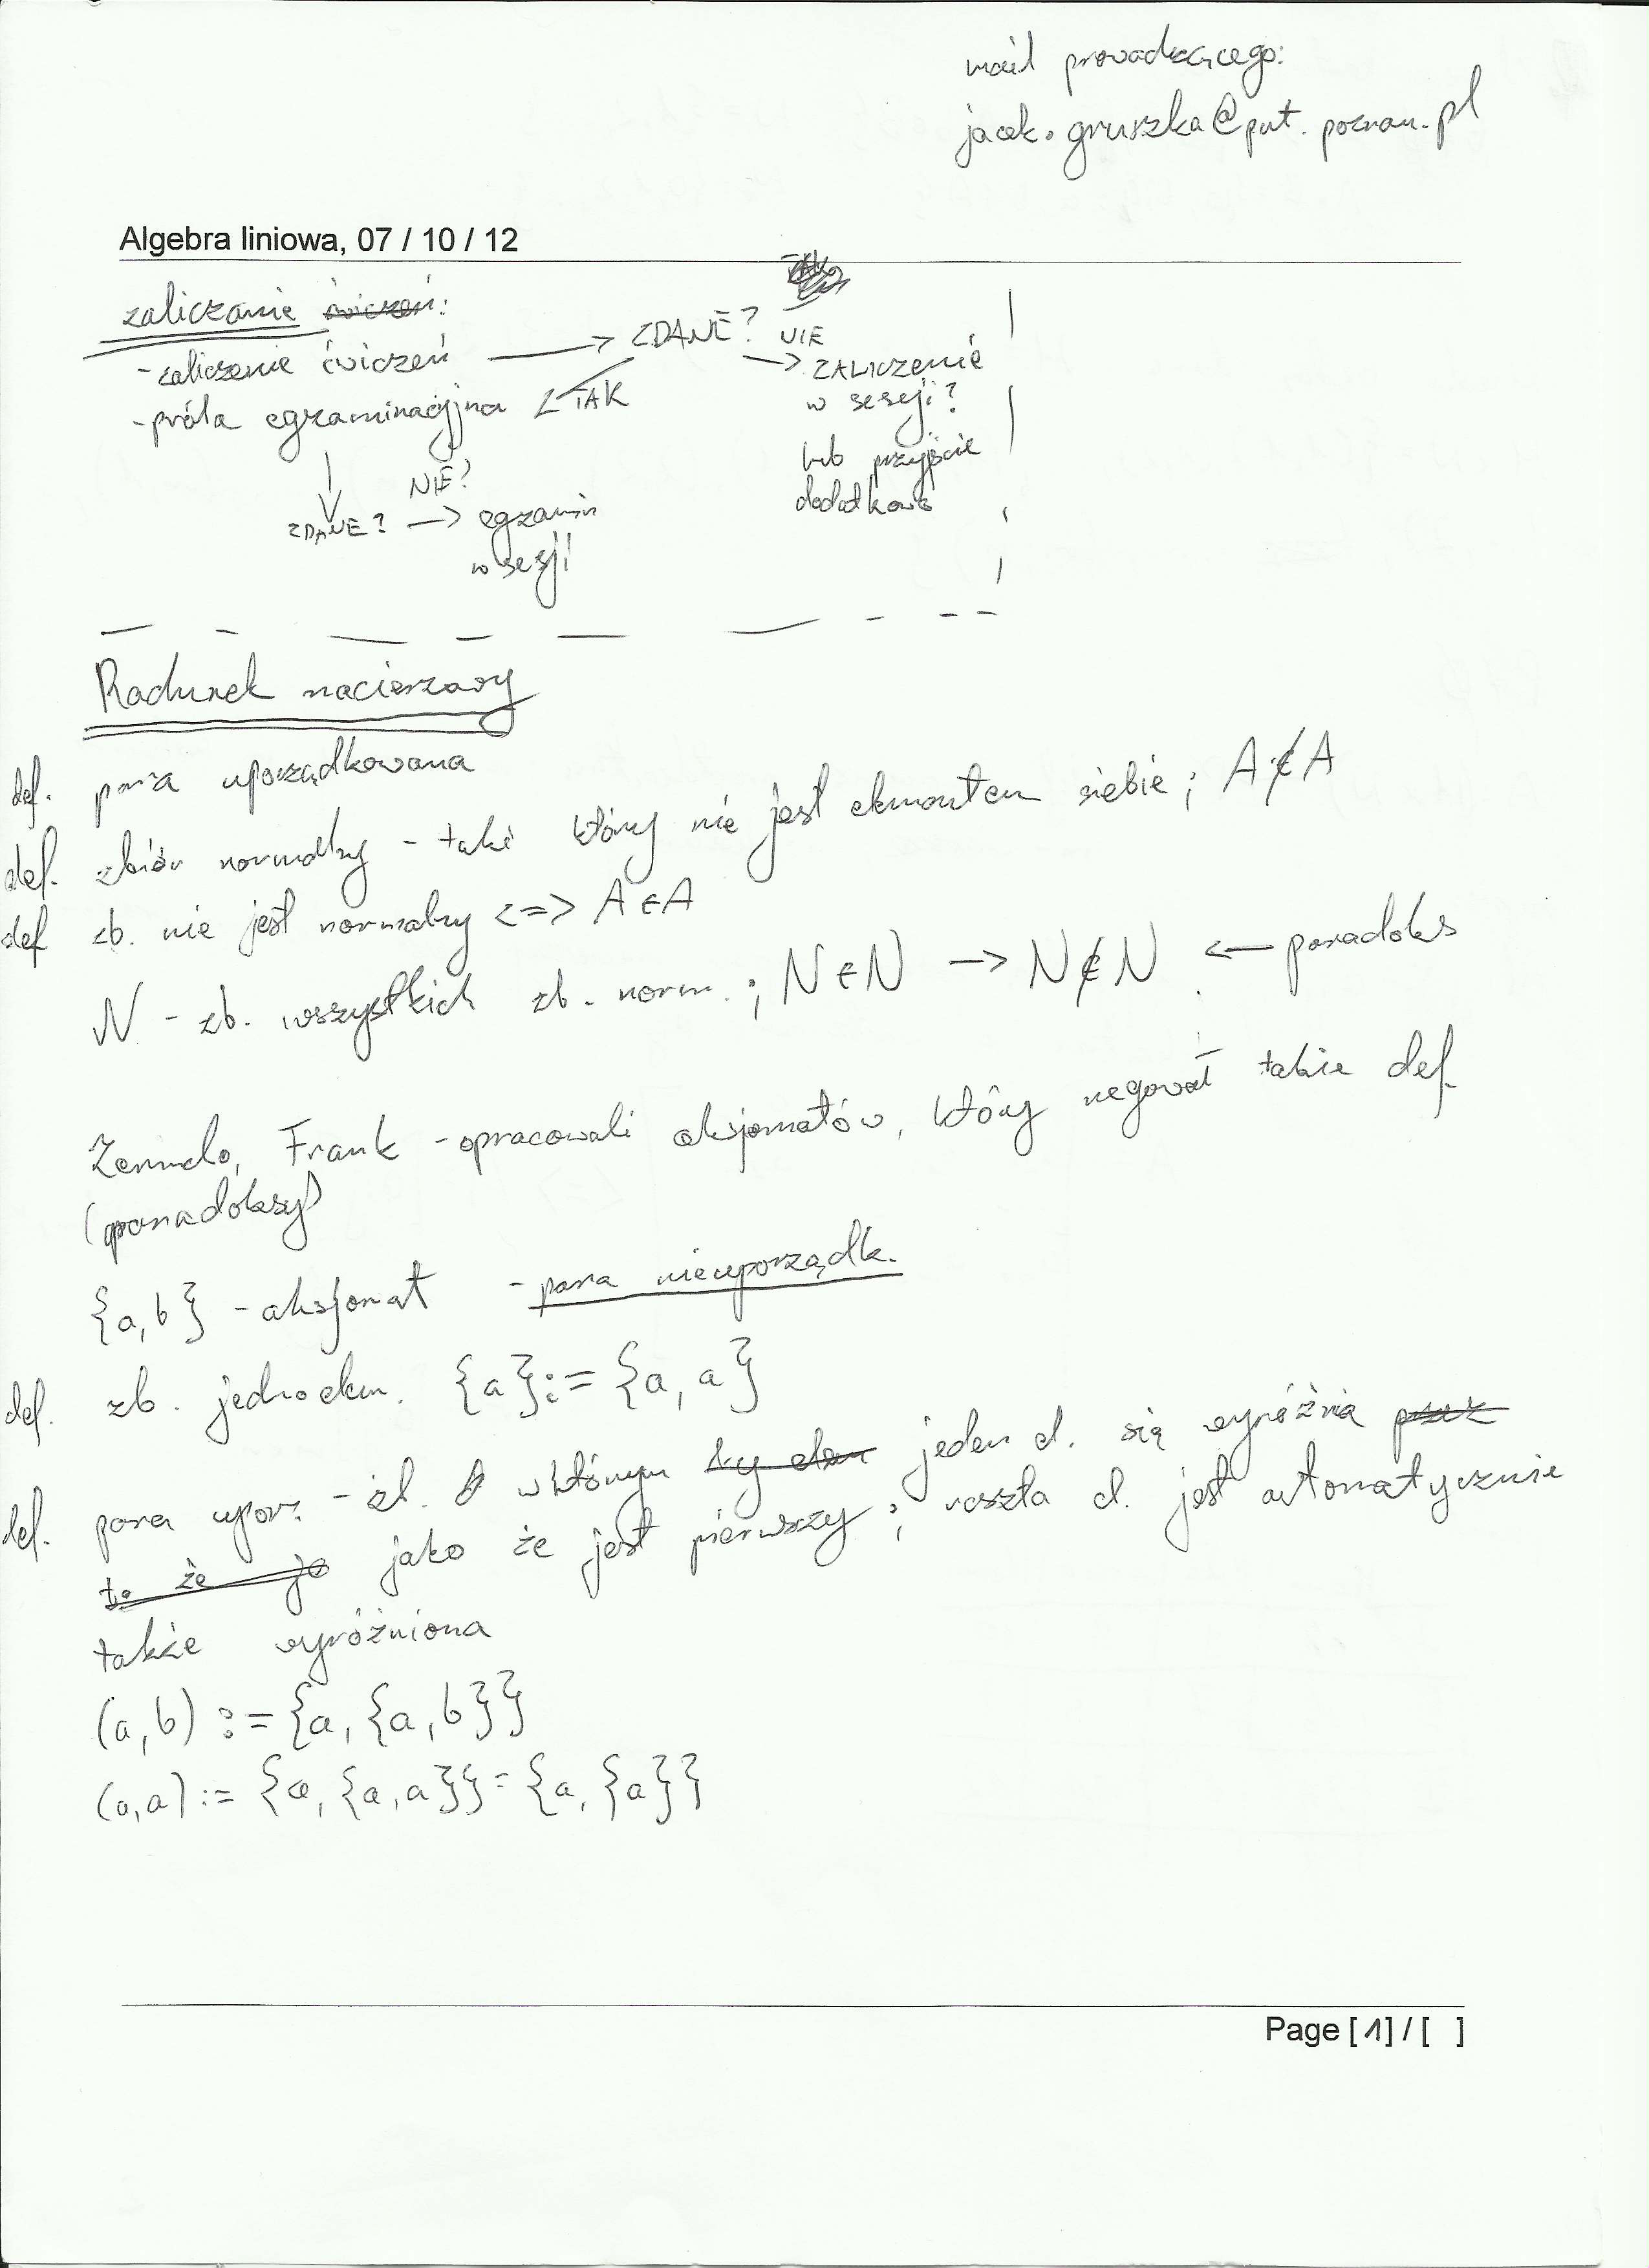 mail prowadzącego:
jacek.gruszka@put.poznan.pl
Algebra liniowa, 07 / 10 / 12
zaliczanie ćwiczeń:
-zaliczenie ćwiczeń → ZDANE? NIE
→ ZALICZENIE
w sesji?
-próba egzaminacyjna TAK
lub przyjście
dodatkowe
NIE?
ZDANE? → egzamin
w sesji
Rachunek macierzowy
def. para uporządkowana
def. zbiór normalny - taki który nie jest elementem siebie; A∉A
def zb. nie jest normalny <=> A∈A
N - zb. wszystkich zb. norm.; N∈N → N∉N ← paradoks
Zermelo, Frank - opracowali aksjomatów, który negował takie def.
(paradoksy)
{a,b} - aksjomat - para nieuporządk.
def. zb. jednoelem. {a}:={a, a}
def. para uporz. - zb. w którym jeden el. się wyróżnia
to że je jako że jest pierwszy; reszta el. jest automatycznie
także wyróżniona
(a,b) := {a, {a,b}}
(a,a) := {a, {a,a}} = {a, {a}}
Page [1] / [ ]